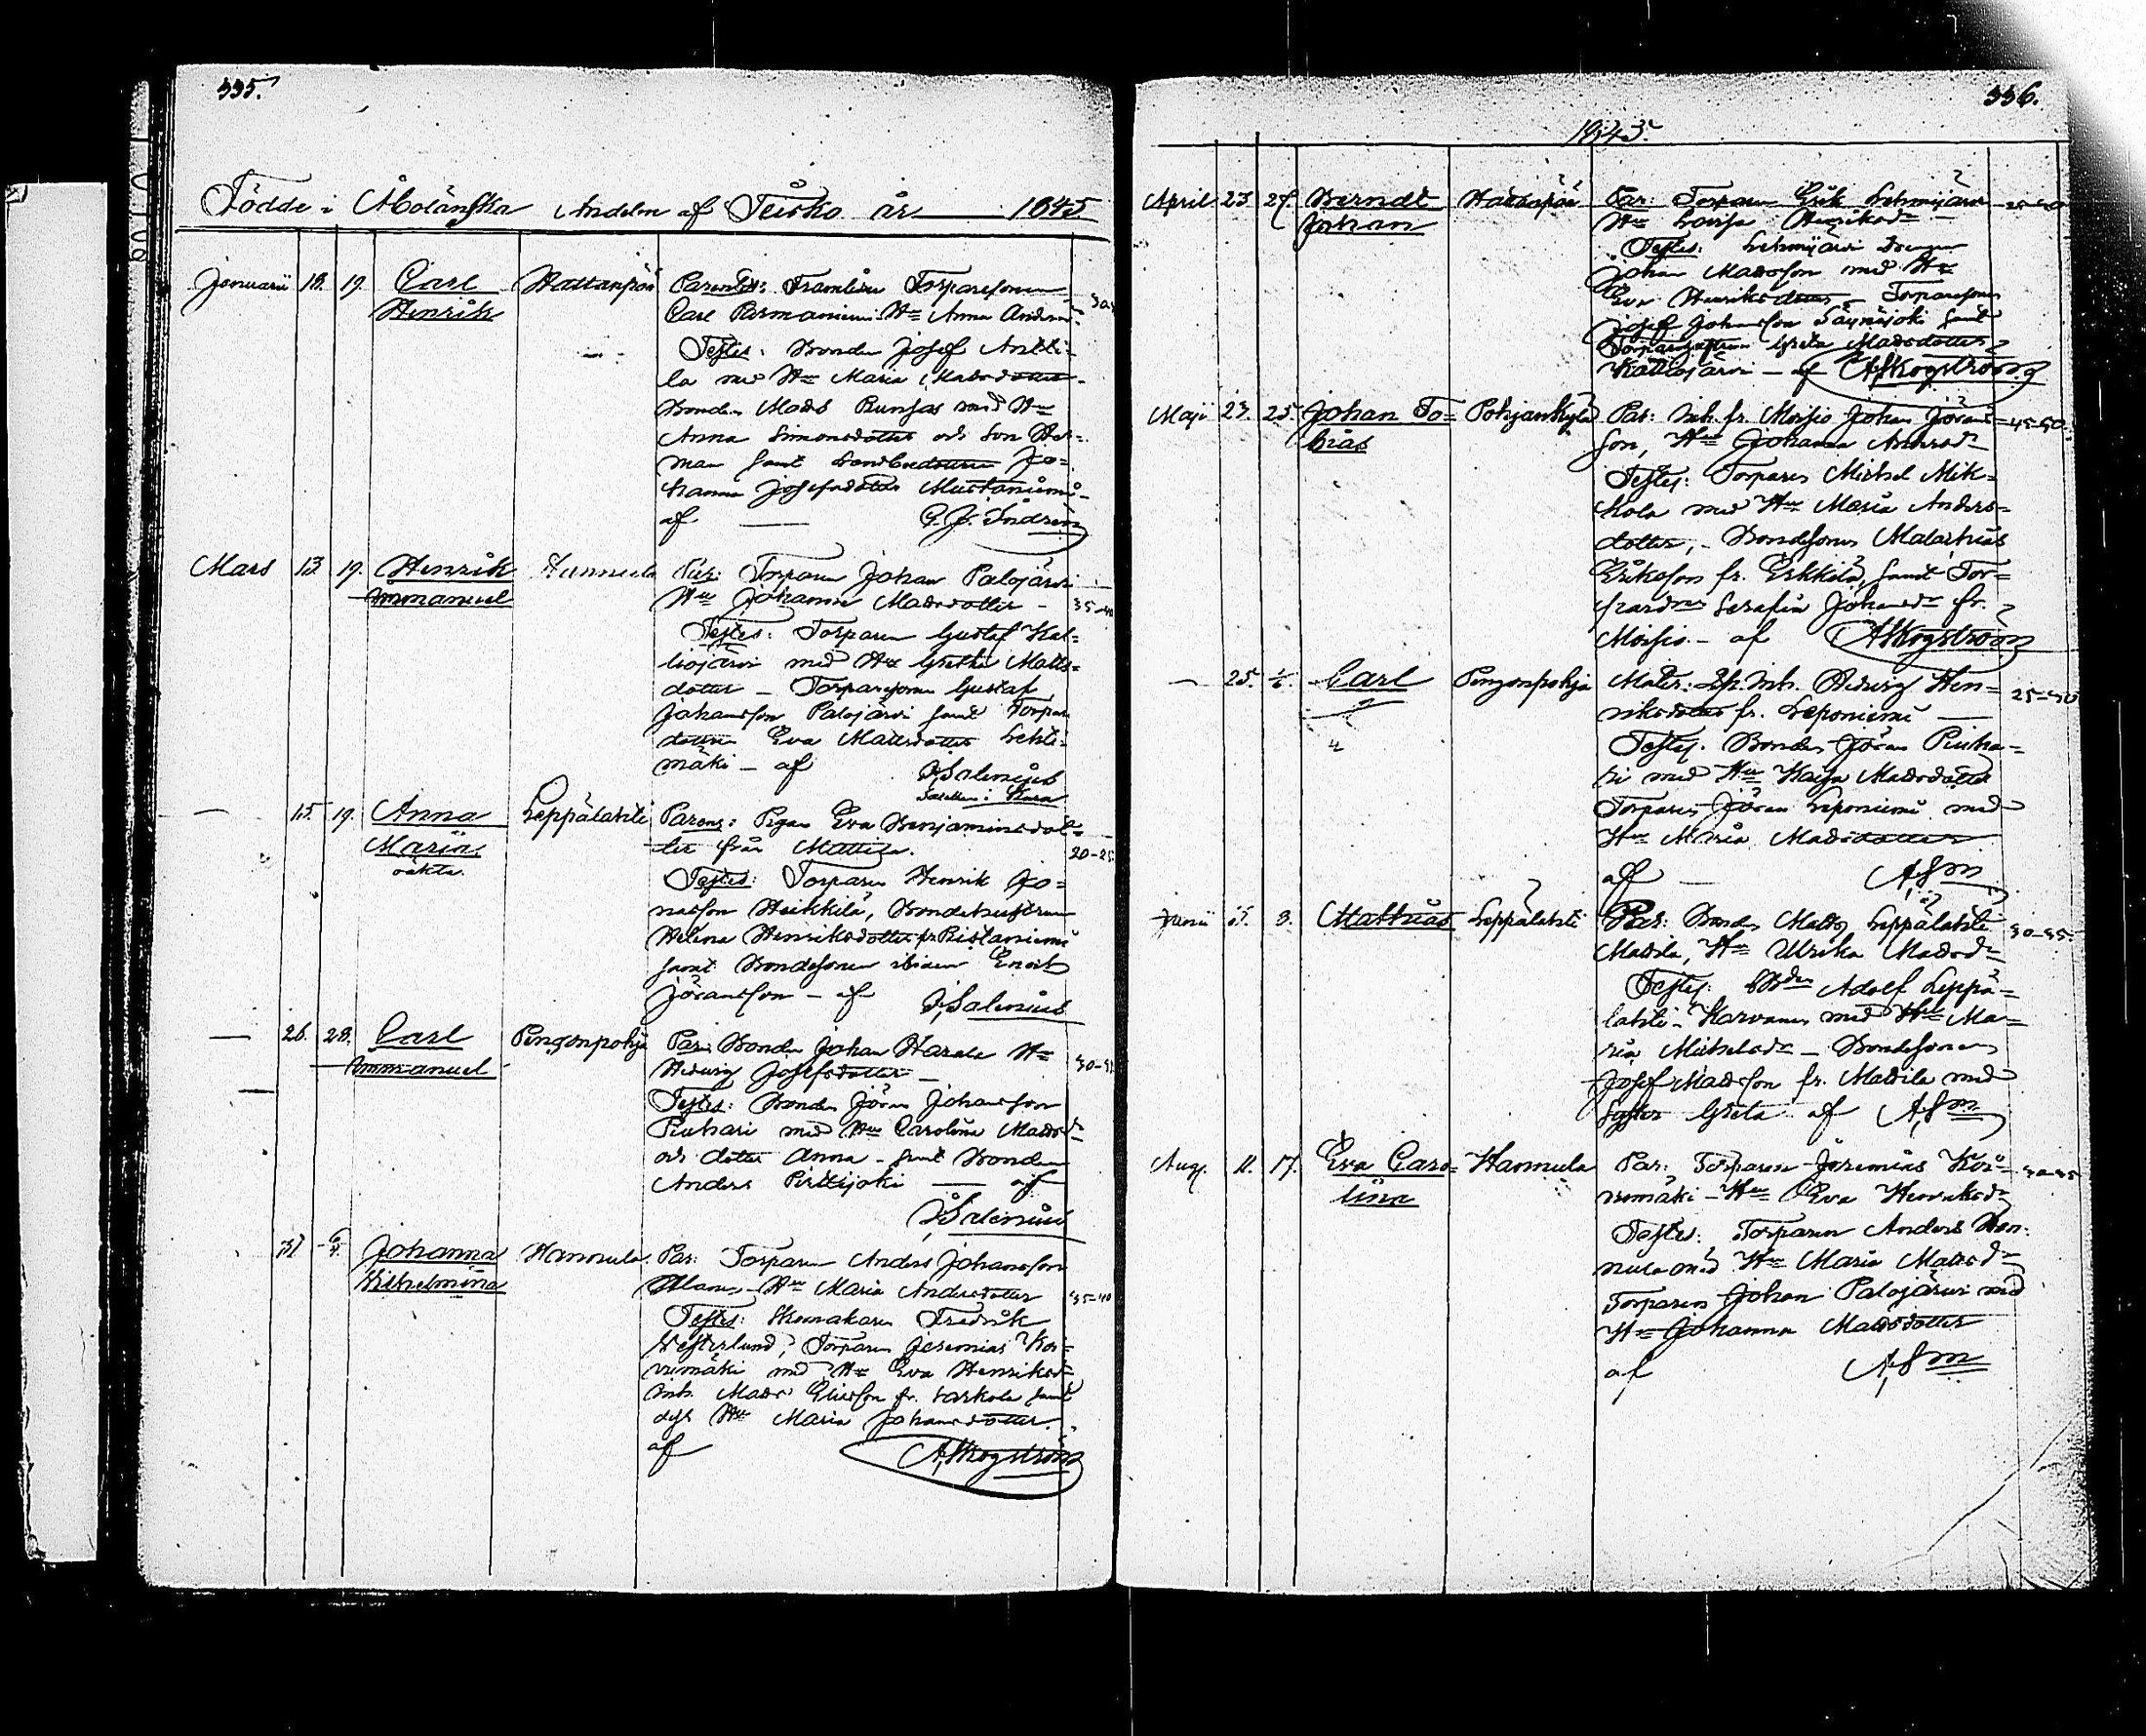 335.
Födde i Åboländska Andelen af Teisko år 1845
Januarii 18. 19. Carl Hattanpää Parentes: Framlidne Torparesonen
Henrik Carl Parmaniemi Hu Anna Anders
Testes: Bonden Josef Antti-
la med Hu Maria Madsdotter
Bonden Mads Runsas med Hu
Anna Simonsdotter och son Her-
man samt Jo-
hanna Josefsdotter Mustaniemi
af
Mars 13. 19. Henrik Hannula Par: Torparen Johan Palojärvi
Immanuel Hu Johanna Madsdotter - 35-40
Testes: Torparen Gustaf Kal-
liojärvi med Hu Gretha Matts-
dotter - Torparesonen Gustaf
Johansson Palojärvi samt Torpare
dottren Eva Mattsdotter Lehti-
mäki - af Salenius
— 15. 19. Anna Leppälahti Parens: Pigan Eva Benjaminsdot-
Maria ter från Mattila. 20-25
oäkta. Testes: Torparen Henrik Jo-
nasson Heikkilä, Bondehustrun
Helena Henriksdotter fr Ristaniemi
samt Bondesonen ibidem Enoch
Göransson - af Salenius
— 26. 28. Carl Pengonpohja Par: Bonden Johan Harala Hu
Immanuel Hedvig Josefsdotter
Testes: Bonden Jöran Johansson
Piuhari med Hu Carolina Madsdr
och dotter Anna - samt Bonden
Anders Perttijoki — af
Salenius
31 Johanna Hannula Par: Torparen Anders Johansson
Wilhelmina Hu Maria Andersdotter 35-40
Testes: Skomakaren Fredrik
Westerlund, Torparen Jeremias Kor-
vumäki med Hu Eva Henriksdr
Inh. Mads Eliasson fr. samt
dess Hu Maria Johansdotter.
af A. Skogström
336.
1845.
April 23. 27. Berndt Hattanpää Par: Torparen Erik Lehmijärvi
Johan Hu Lovisa Henriksdr
Testes: Lehmijärvi Drengen
Johan Madsson med Hu
Eva Henriksdotter, Torparesonen
Josef Johansson Säynäjoki samt
Greta Madsdotter
Kalliojärvi - af A. Skogström
Maji 23. 25. Johan To- Pohjankylä Par: Inh. fr. Moisio Johan Jörans- 45-50.
bias son, Hu Johanna Andersdr
Testes: Torparen Michel Mik-
kola med Hu Maria Anders-
dotter, - Bondesonen Malachias
Eriksson fr. Erkkilä, samt Tor-
Serafia Johansdr fr.
Moisio. - af A. Skogström
— 25. 1/6. Carl Pengonpohja Mater: Inh. Hedvig Hen- 25-30
4 riksdotter fr. Leponiemi —
Testes. Bonden Jöran Piuha-
ri med Hu Kaisa Madsdotter
Torparen Jöran Leponiemi med
Hu Maria Madsdotter
af —
Junii 8. Matthias Leppälahti Par: Bonden Matts Leppälahti 30-35.
Mattila, Hu Ulrika Madsdr
Testes: Adolf Leppä-
lahti - Karvanen med Hu Ma-
ria Michelsdr - Bondesonen
Josef Madsson fr. Mattila med
Syster Greta af
Aug. 11. 17. Eva Caro- Hannula Par: Torparen Jeremias Kor- 30-35
lina vumäki - Hu Eva Henriksdr
Testes: Torparen Anders Han-
nula med Hu Maria Mattsdr
Torparen Johan Palojärvi med
Hu Johanna Madsdotter
af